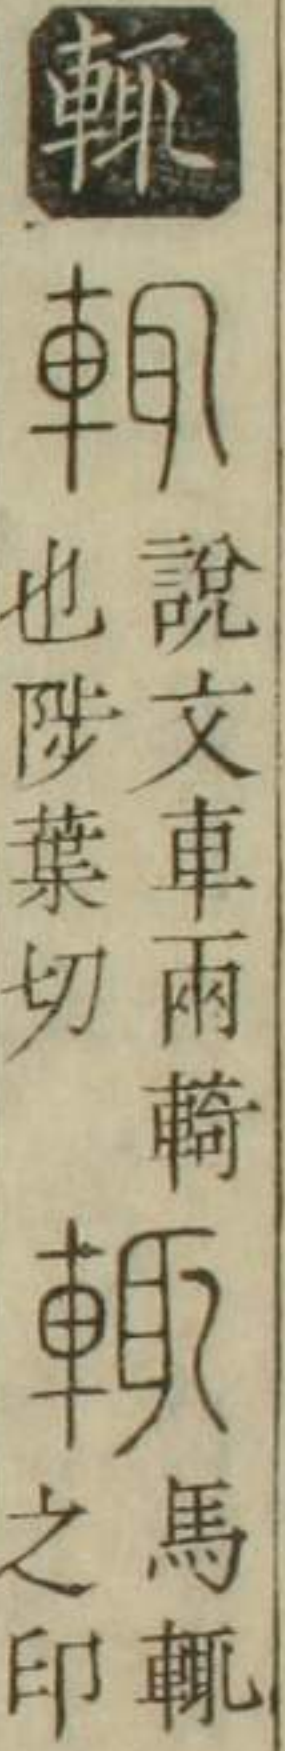 輒
輒
說文車兩輢
也陟葉切
輒
馬輒
之印